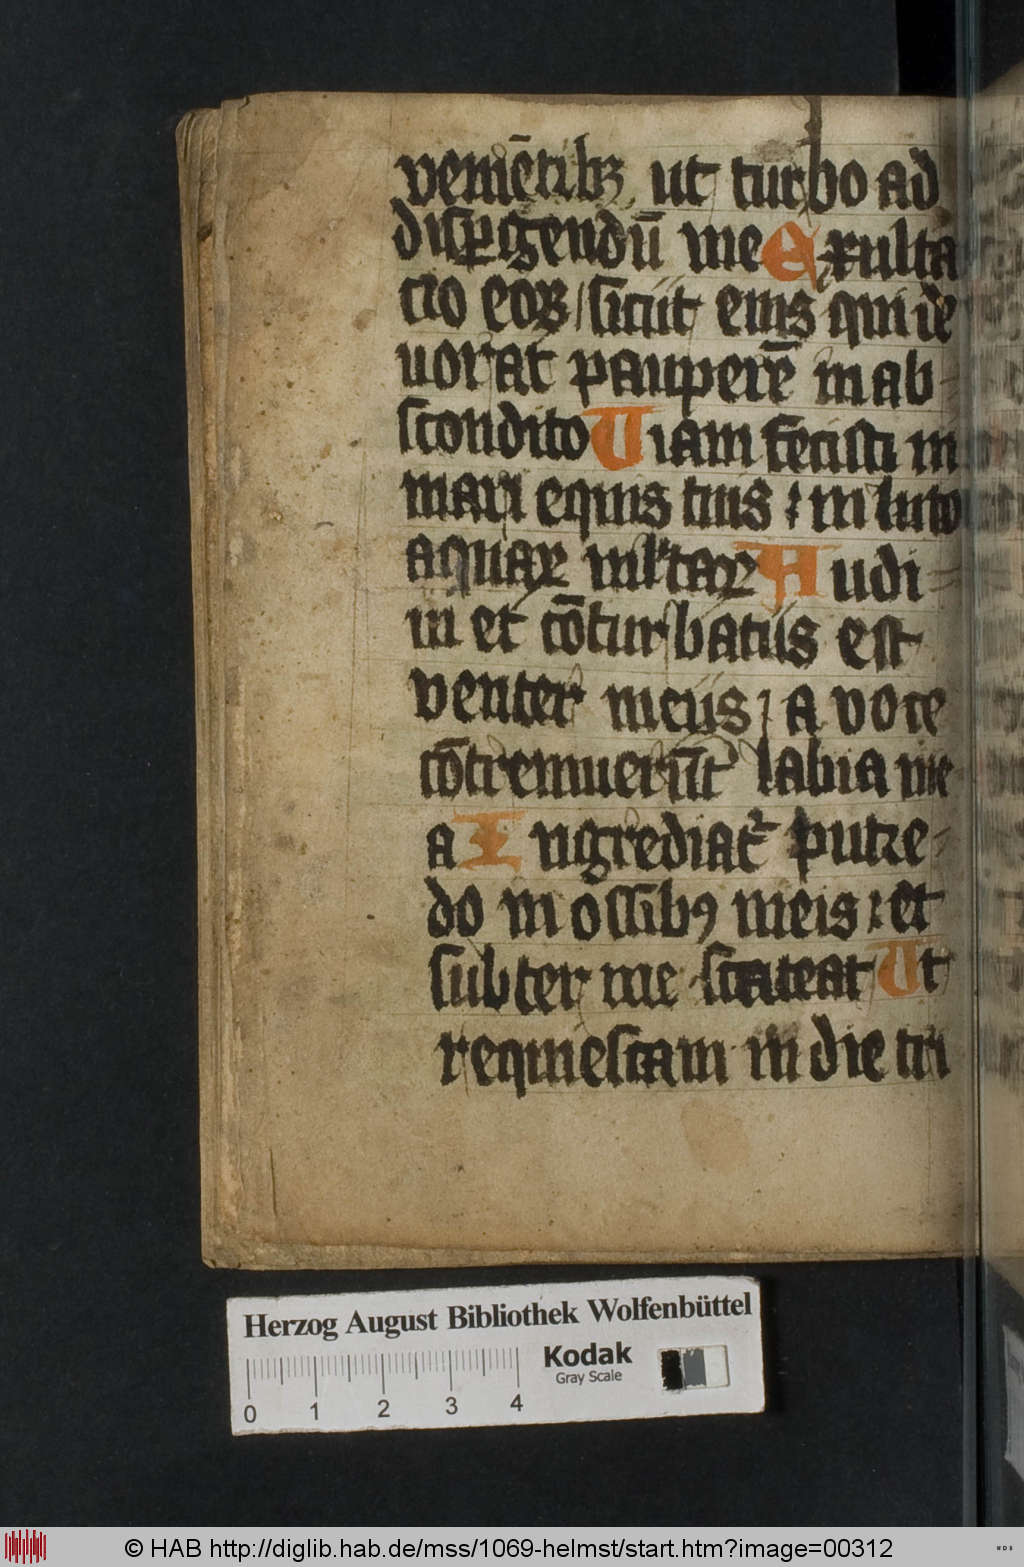 veniētibꝫ ut turbo ad
disꝑgendū me Exulta
cio eoꝝ / sicut eius qui de
uorat pauperē in ab
scondito Uiam fecisti in
mari equis tuis : in luto
aquaꝝ mltaꝝ Audi
ui et cōturbatus est
venter meus : a voce
cōtremuerūt labia me
a Ingrediat᷑ putre
do in ossibꝰ meis : et
subter me scateat Ut
requiescam in die tri
Herzog August Bibliothek Wolfenbüttel
Kodak
Gray Scale
0 1 2 3 4
© HAB http://diglib.hab.de/mss/1069-helmst/start.htm?image=00312